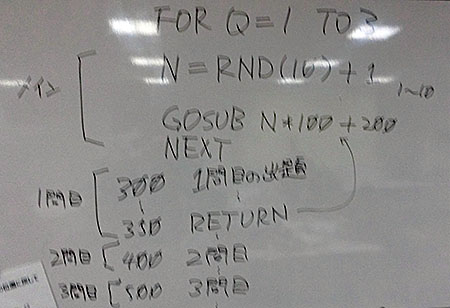 FOR Q=1 TO 3
メイン N=RND(10)+1 1~10
GOSUB N*100+200
NEXT
1問目 300 1問目の出題
350 RETURN
2問目 400 2問目
3問目 500 3問目